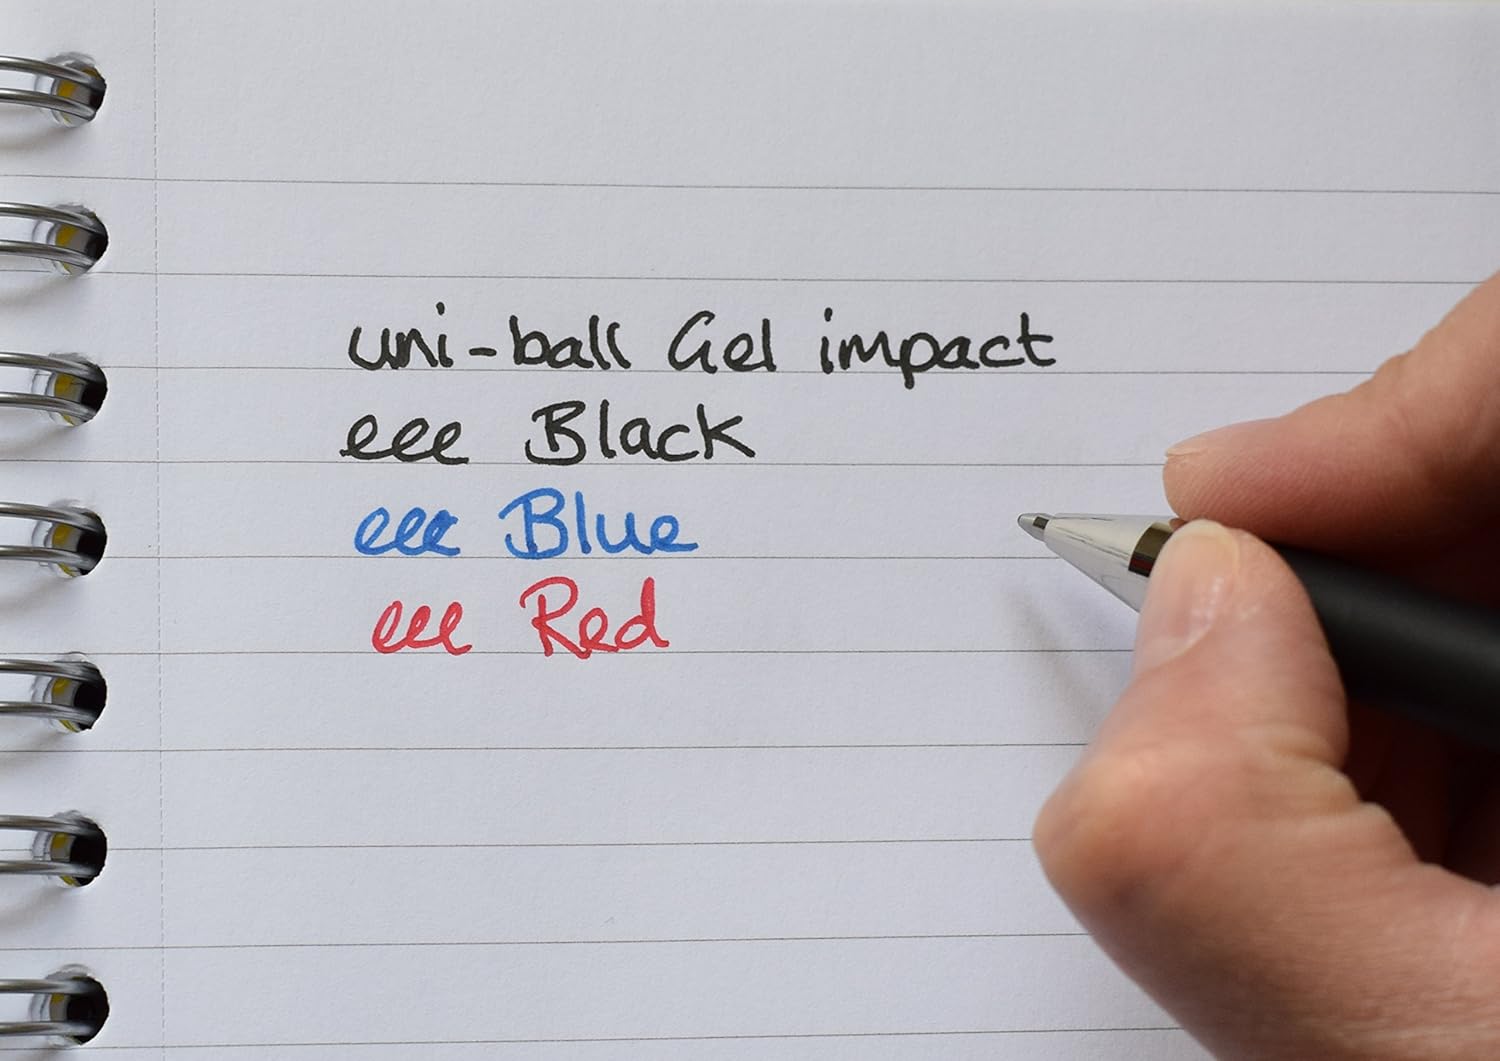 uni-ball Gel impact
eee Black
eee Blue
eee Red